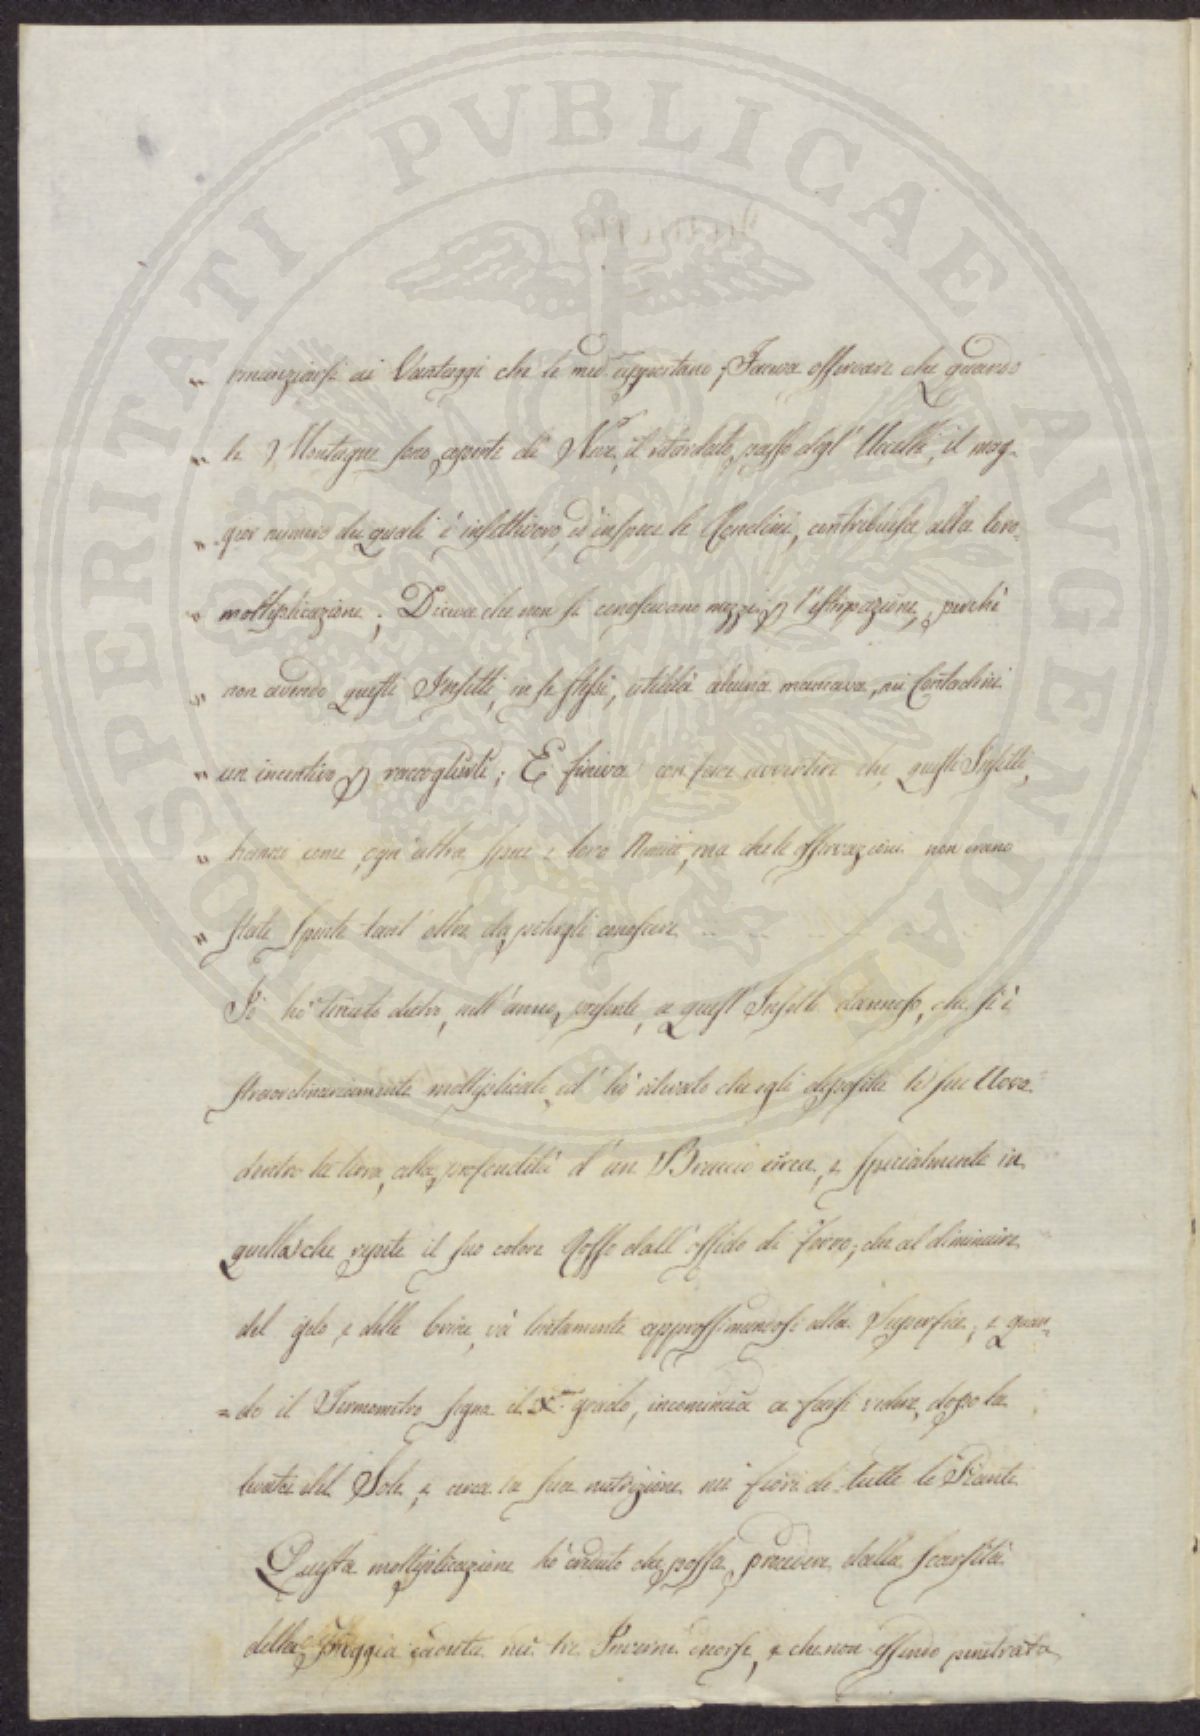 PROSPERITATI PUBLICAE AUGENDAE
" rinunziarsi ai Vantaggi che le med. apportano; Faceva osservare che quando
" le Montagne sono coperte di Neve, il ritardato passo degl' Uccelli, il mag-
" gior numero dei quali è insettivoro, ed in specie le Rondini, contribuisca alla loro
" moltiplicazione; Diceva che non si conoscevano mezzi p l'estirpazione, perchè
" non avendo questi Insetti, in se stessi, utilità alcuna mancava, ai Contadini
" un incentivo p raccoglierli; E finiva con fare avvertire che questi Insetti,
" hanno come ogn' altra specie i loro Nemici, ma che le osservazioni non erano
" state spinte tant' oltre da poterli conoscere
Io hò tenuto dietro, nell' anno presente, a quest' Insetto dannoso, che si è
straordinariamente moltiplicato, ed hò rilevato che egli deposita le sue Uova
dentro la terra, alla profondità d' un Braccio circa, e specialmente in
quella che ripete il suo colore Rosso dall' ossido di Ferro; che al diminuire
del gelo, e delle brine, và lentamente approssimandosi alla Superficie; e quan-
=do il Termometro segna il X.mo grado, incomincia a farsi vedere, dopo la
levata del Sole, e cerca la sua nutrizione nei fiori di tutte le Piante
Questa moltiplicazione hò creduto che possa procedere dalla scarsità
della Pioggia caduta nei tre Inverni decorsi, e che non essendo penetrata